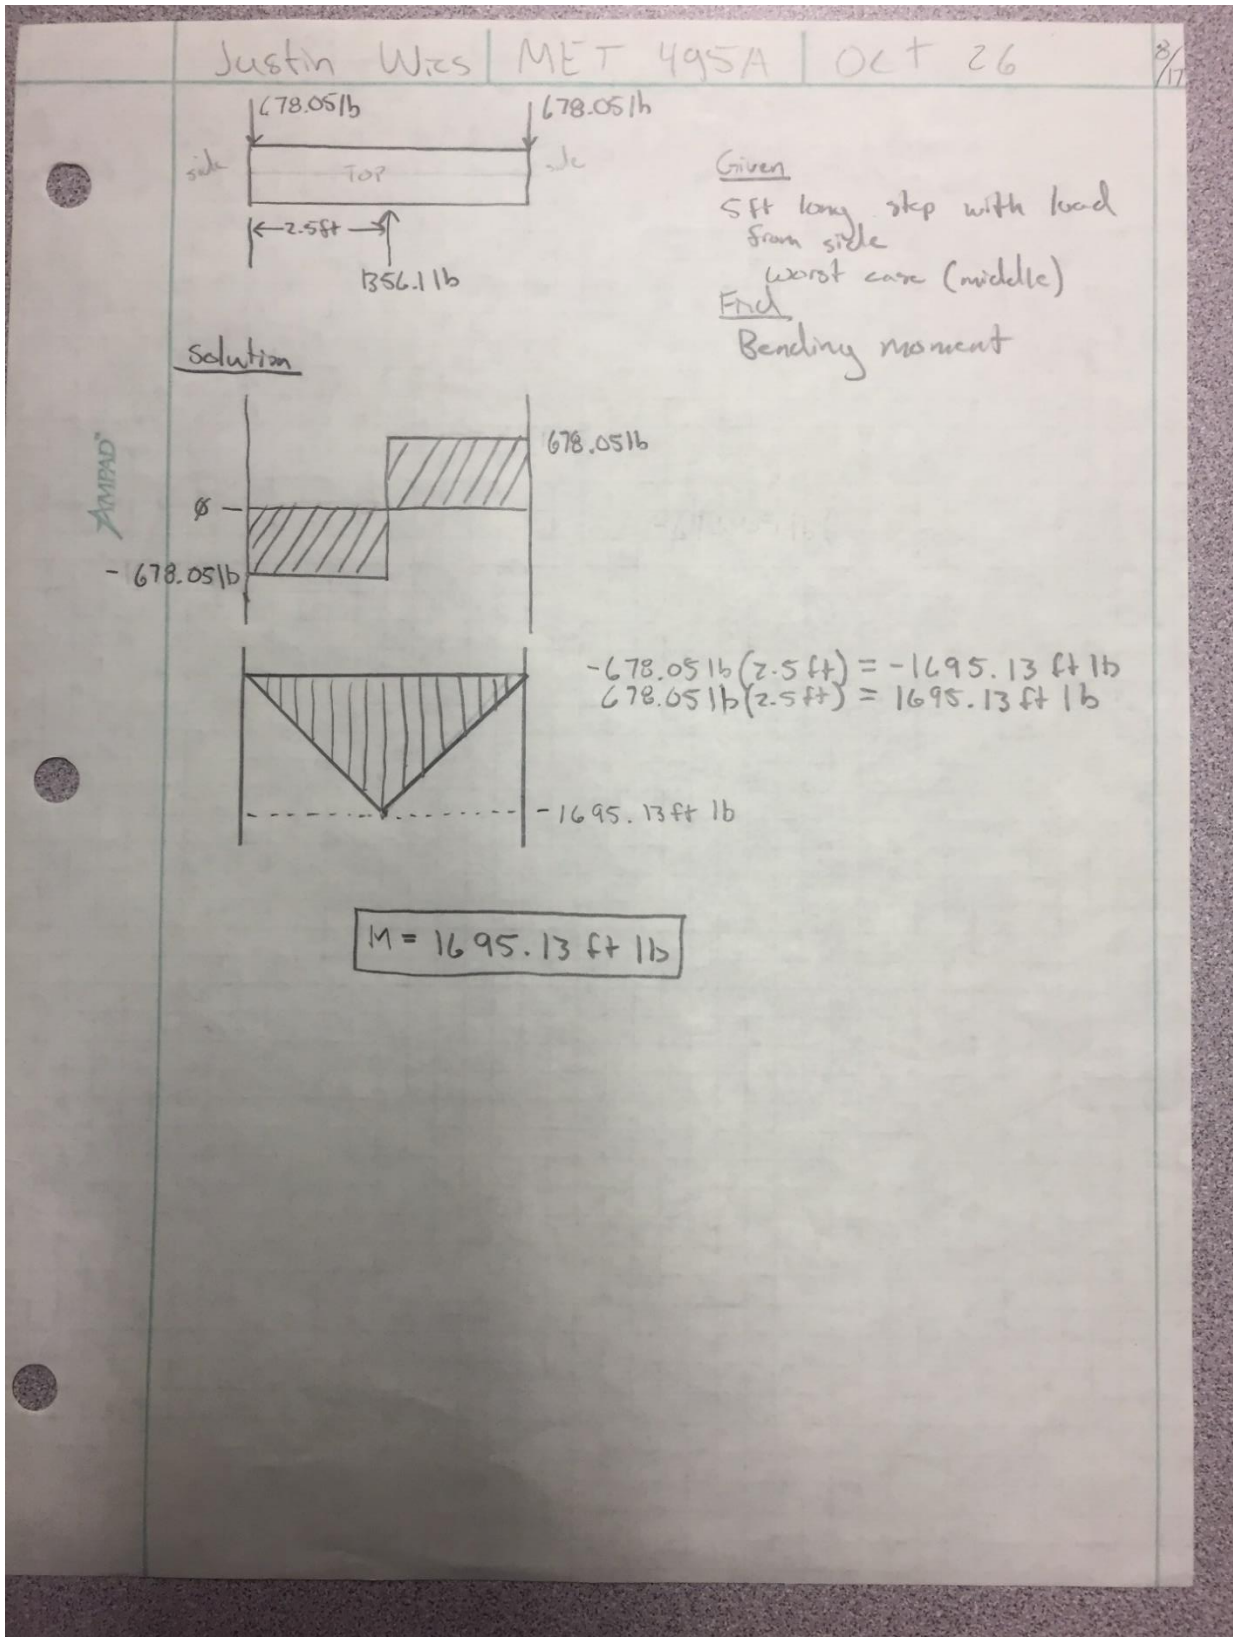 Justin Wies | MET 495A | Oct 26 8/17
678.05lb 678.05lb
side TOP side
2.5ft
1356.1 lb
Given
5ft long step with load
from side
worst case (middle)
Find
Bending moment
Solution
678.05lb
Ø
-678.05lb
AMPAD
-678.05lb(2.5ft) = -1695.13 ft lb
678.05lb(2.5ft) = 1695.13 ft lb
-1695.13ft lb
M = 1695.13 ft lb